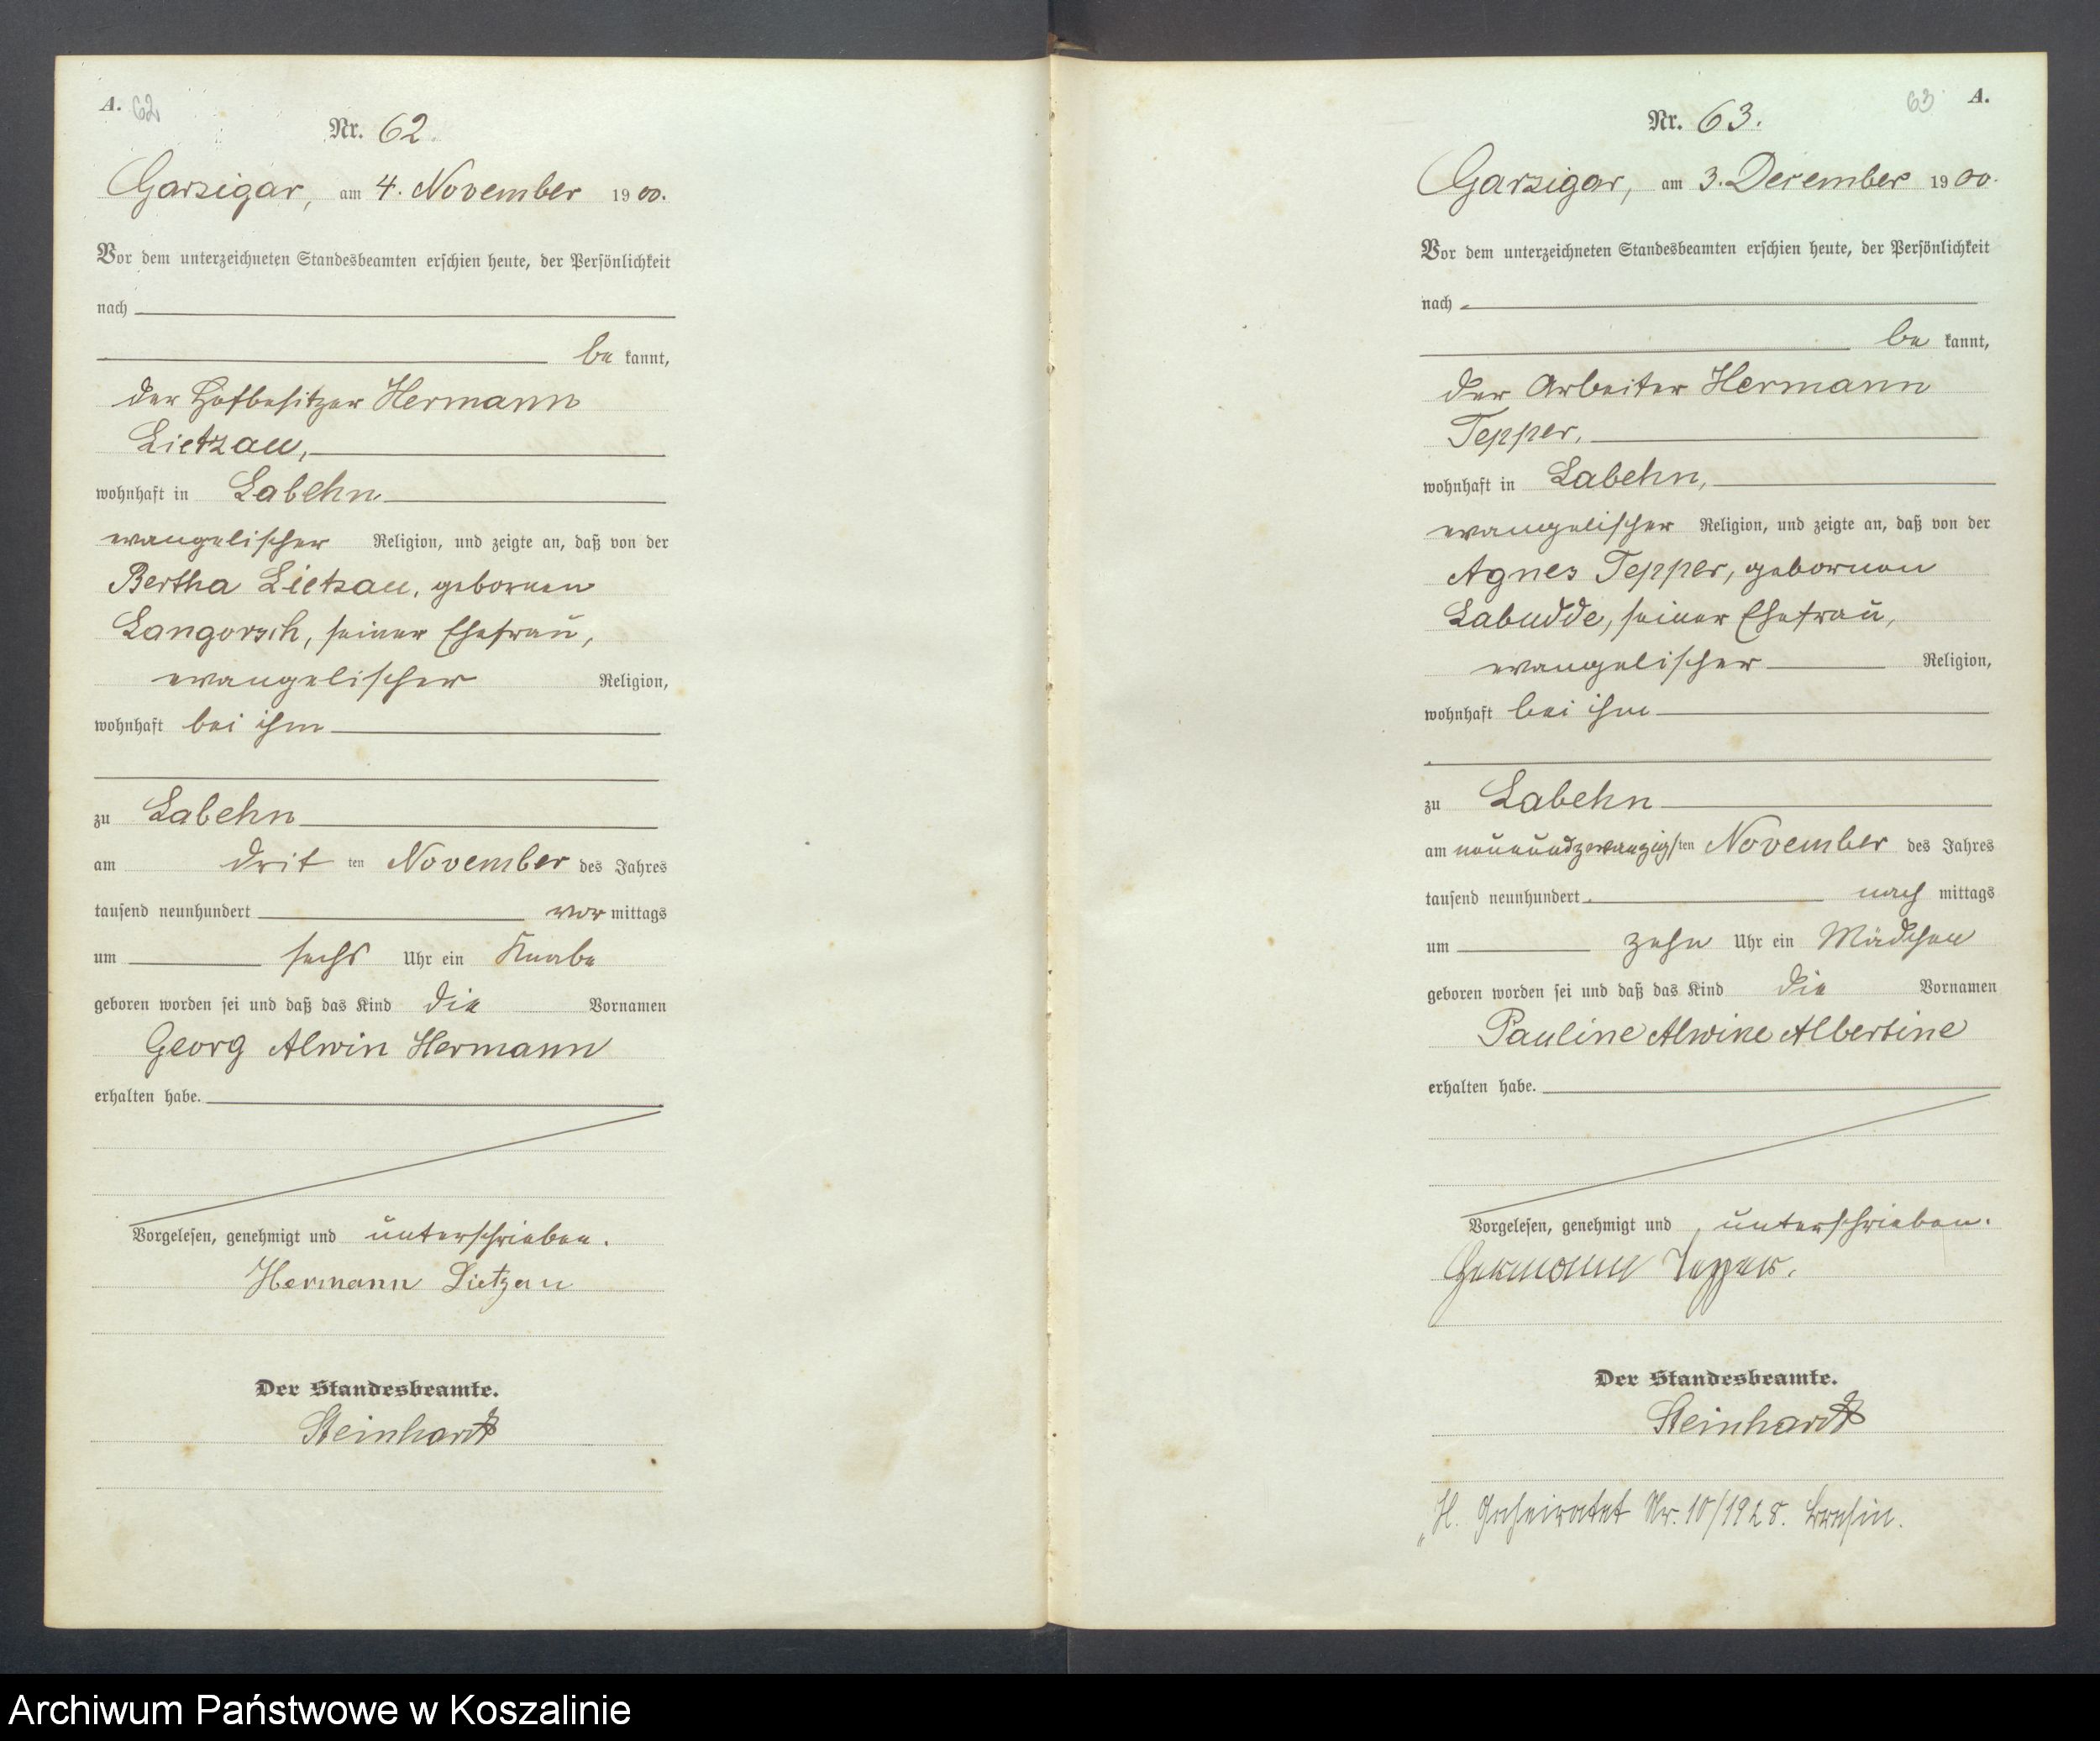 A. 62
Nr. 62
Garzigar, am 4. November 1900.
Vor dem unterzeichneten Standesbeamten erschien heute, der Persönlichkeit
nach
be kannt,
der Hofbesitzer Hermann
Lietzau,
wohnhaft in Labehn
evangelischer Religion, und zeigte an, daß von der
Bertha Lietzau, geborenen
Langorsch, seiner Ehefrau,
evangelischer Religion,
wohnhaft bei ihm
zu Labehn
am drit ten November des Jahres
tausend neunhundert vor mittags
um sechs Uhr ein Knabe
geboren worden sei und daß das Kind die Vornamen
Georg Alwin Hermann
erhalten habe.
Vorgelesen, genehmigt und unterschrieben.
Hermann Lietzau
Der Standesbeamte.
Steinhardt
63 A.
Nr. 63.
Garzigar, am 3. December 1900.
Vor dem unterzeichneten Standesbeamten erschien heute, der Persönlichkeit
nach
be kannt,
der Arbeiter Hermann
Tepper,
wohnhaft in Labehn,
evangelischer Religion, und zeigte an, daß von der
Agnes Tepper, geborenen
Labudde, seiner Ehefrau,
evangelischer Religion,
wohnhaft bei ihm
zu Labehn
am neunundzwanzigsten November des Jahres
tausend neunhundert nach mittags
um zehn Uhr ein Mädchen
geboren worden sei und daß das Kind die Vornamen
Pauline Alwine Albertine
erhalten habe.
Vorgelesen, genehmigt und unterschrieben.
Hermann Tepper.
Der Standesbeamte.
Steinhardt
H. Geheiratet Nr. 10/1928.
Archiwum Państwowe w Koszalinie